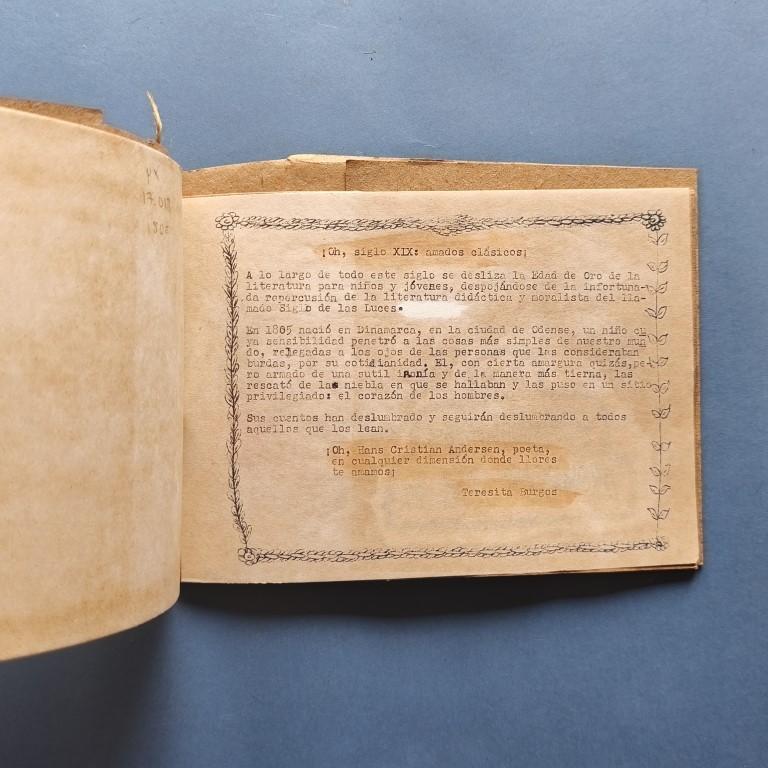 17.017
¡Oh, siglo XIX: amados clásicos¡
A lo largo de todo este siglo se desliza la Edad de Oro de la
literatura para niños y jóvenes, despojándose de la infortuna-
da repercusión de la literatura didáctica y moralista del lla-
mado Siglo de las Luces.
En 1805 nació en Dinamarca, en la ciudad de Odense, un niño cu
ya sensibilidad penetró a las cosas más simples de nuestro mun
do, relegadas a los ojos de las personas que las consideraban
burdas, por su cotidianidad. El, con cierta amargura quizás,pe
ro armado de una sutil ironía y de la manera más tierna, las
rescató de las niebla en que se hallaban y las puso en un sitio
privilegiado: el corazón de los hombres.
Sus cuentos han deslumbrado y seguirán deslumbrando a todos
aquellos que los lean.
¡Oh, Hans Cristian Andersen, poeta,
en cualquier dimensión donde llores
te amamos¡
Teresita Burgos